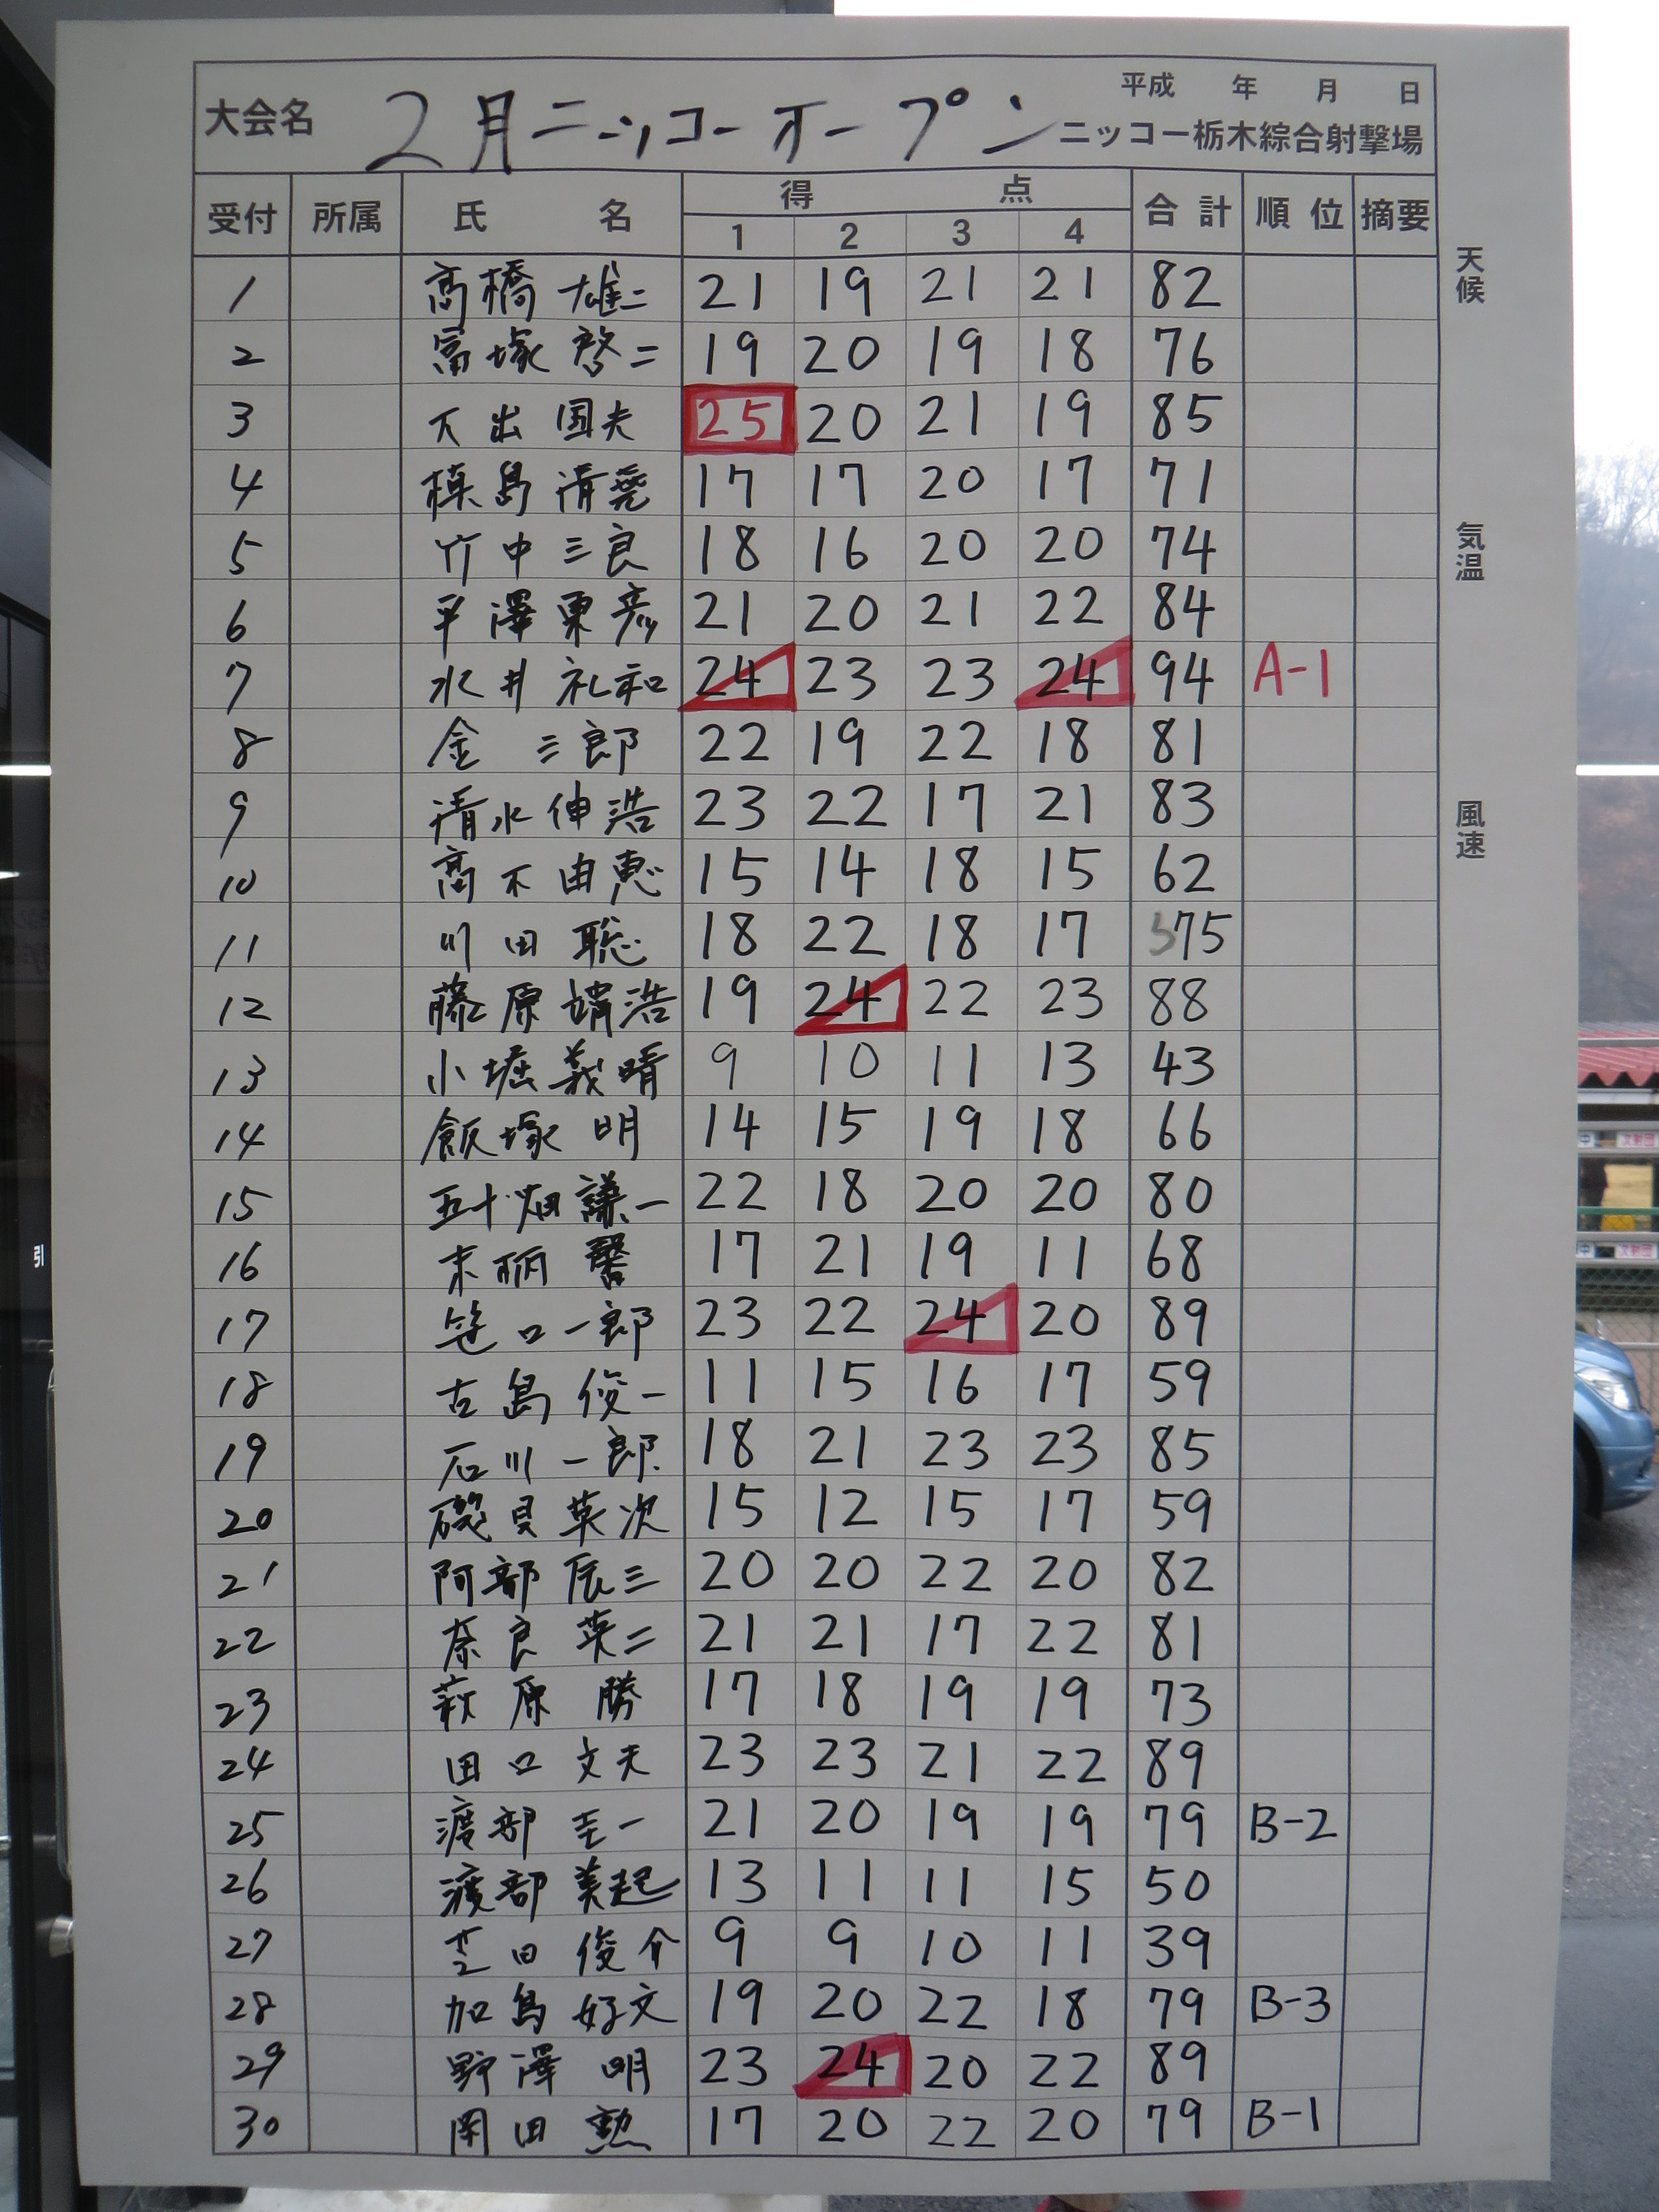 平成 年 月 日
大会名 2月ニッコーオープン ニッコー栃木綜合射撃場
受付 所属 氏 名 得 点 合計 順位 摘要
1 2 3 4
1 高橋 雄二 21 19 21 21 82
2 富塚 啓二 19 20 19 18 76
3 大出 国夫 25 20 21 19 85
4 島 清 17 17 20 17 71
5 竹中 三良 18 16 20 20 74
6 平澤 東彦 21 20 21 22 84
7 水井 礼和 24 23 23 24 94 A-1
8 金 三郎 22 19 22 18 81
9 清水 伸浩 23 22 17 21 83
10 高木 由恵 15 14 18 15 62
11 川田 聡 18 22 18 17 75
12 藤原 靖浩 19 24 22 23 88
13 小堀 義晴 9 10 11 13 43
14 飯塚 明 14 15 19 18 66
15 五十畑 謙一 22 18 20 20 80
16 末柄 馨 17 21 19 11 68
17 笹口 一郎 23 22 24 20 89
18 古島 俊一 11 15 16 17 59
19 石川 一郎 18 21 23 23 85
20 磯貝 英次 15 12 15 17 59
21 阿部 辰三 20 20 22 20 82
22 奈良 英二 21 21 17 22 81
23 萩原 勝 17 18 19 19 73
24 田口 文夫 23 23 21 22 89
25 渡部 圭一 21 20 19 19 79 B-2
26 渡部 美起 13 11 11 15 50
27 芝田 俊介 9 9 10 11 39
28 加島 好文 19 20 22 18 79 B-3
29 野澤 明 23 24 20 22 89
30 岡田 勲 17 20 22 20 79 B-1
天候
気温
風速
引